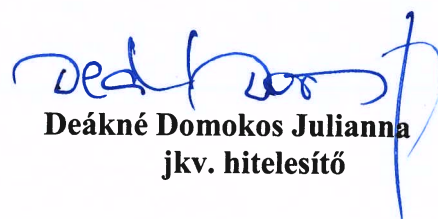 Deákné Domokos Julianna
jkv. hitelesítő